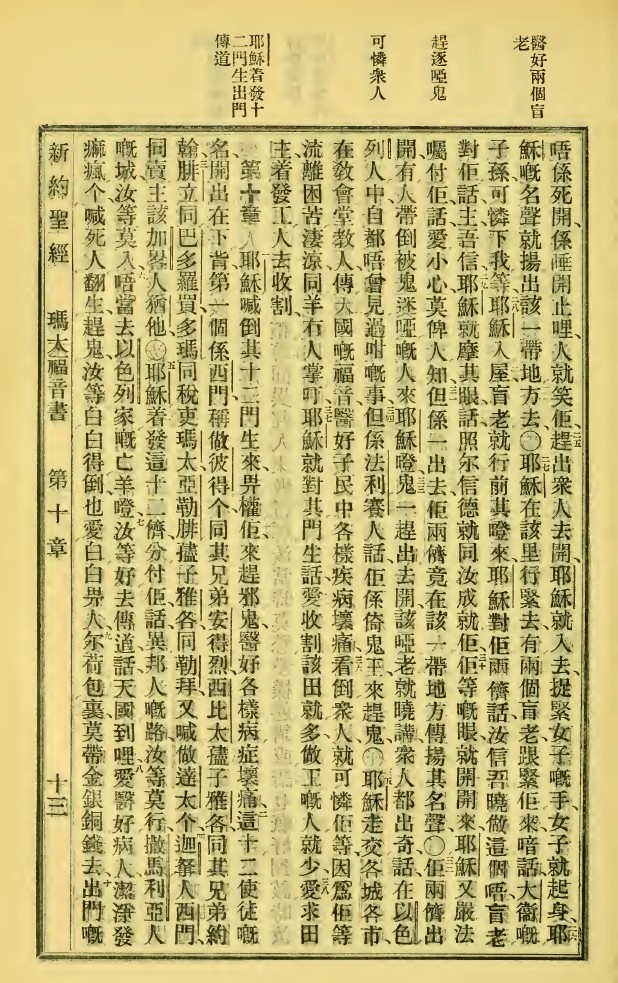 醫好兩個盲
老
趕逐啞鬼
可憐衆人
耶穌着發十
二門生出門
傳道
唔係死開係睡開止哩人就笑佢趕出衆人去開耶穌就入去捉緊女子嘅手女子就起身耶
穌嘅名聲就揚出該一帶地方去〇耶穌在該里行緊去有兩個盲老跟緊佢來喑話大衞嘅
子孫可憐下我等耶穌入屋盲老就行前其噔來耶穌對佢兩儕話汝信吾曉做這個唔盲老
對佢話主吾信耶穌就摩其眼話照尔信德就同汝成就佢佢等嘅眼就開開來耶穌又嚴法
囑付佢話愛小心莫俾人知但係一出去佢兩儕竟在該一帶地方傳揚其名聲〇佢兩儕出
開有人帶倒被鬼迷啞嘅人來耶穌噔鬼一趕出去開該啞老就曉講衆人都出奇話在以色
列人中自都唔曾見過咁嘅事但係法利賽人話佢係倚鬼王來趕鬼〇耶穌走交各城各市
在敎會堂教人傳天國嘅福音醫好子民中各樣疾病壞痛看倒衆人就可憐佢等因爲佢等
流離困苦淒涼同羊冇人掌叮耶穌就對其門生話愛收割該田就多做工嘅人就少愛求田
主着發工人去收割
第十章 耶穌喊倒其十二門生來畀權佢來趕邪鬼醫好各樣病症壞痛這十二使徒嘅
名開出在下背第一個係西門稱做彼得个同其兄弟安得烈西比太孻子雅各同其兄弟約
翰腓立同巴多羅買多瑪同稅吏瑪太亞勒腓孻子雅各同勒拜又喊做達太个迦拏人西門
同賣主該加畧人猶他〇耶穌着發這十二儕分付佢話異邦人嘅路汝等莫行撒馬利亞人
嘅城汝等莫入唔當去以色列家嘅亡羊噔汝等好去傳道話天國到哩愛醫好病人潔淨發
痲瘋个喊死人翻生趕鬼汝等白白得倒也愛白白畀人尔荷包裏莫帶金銀銅錢去出門嘅
新約聖經 瑪太福音書 第十章 十三